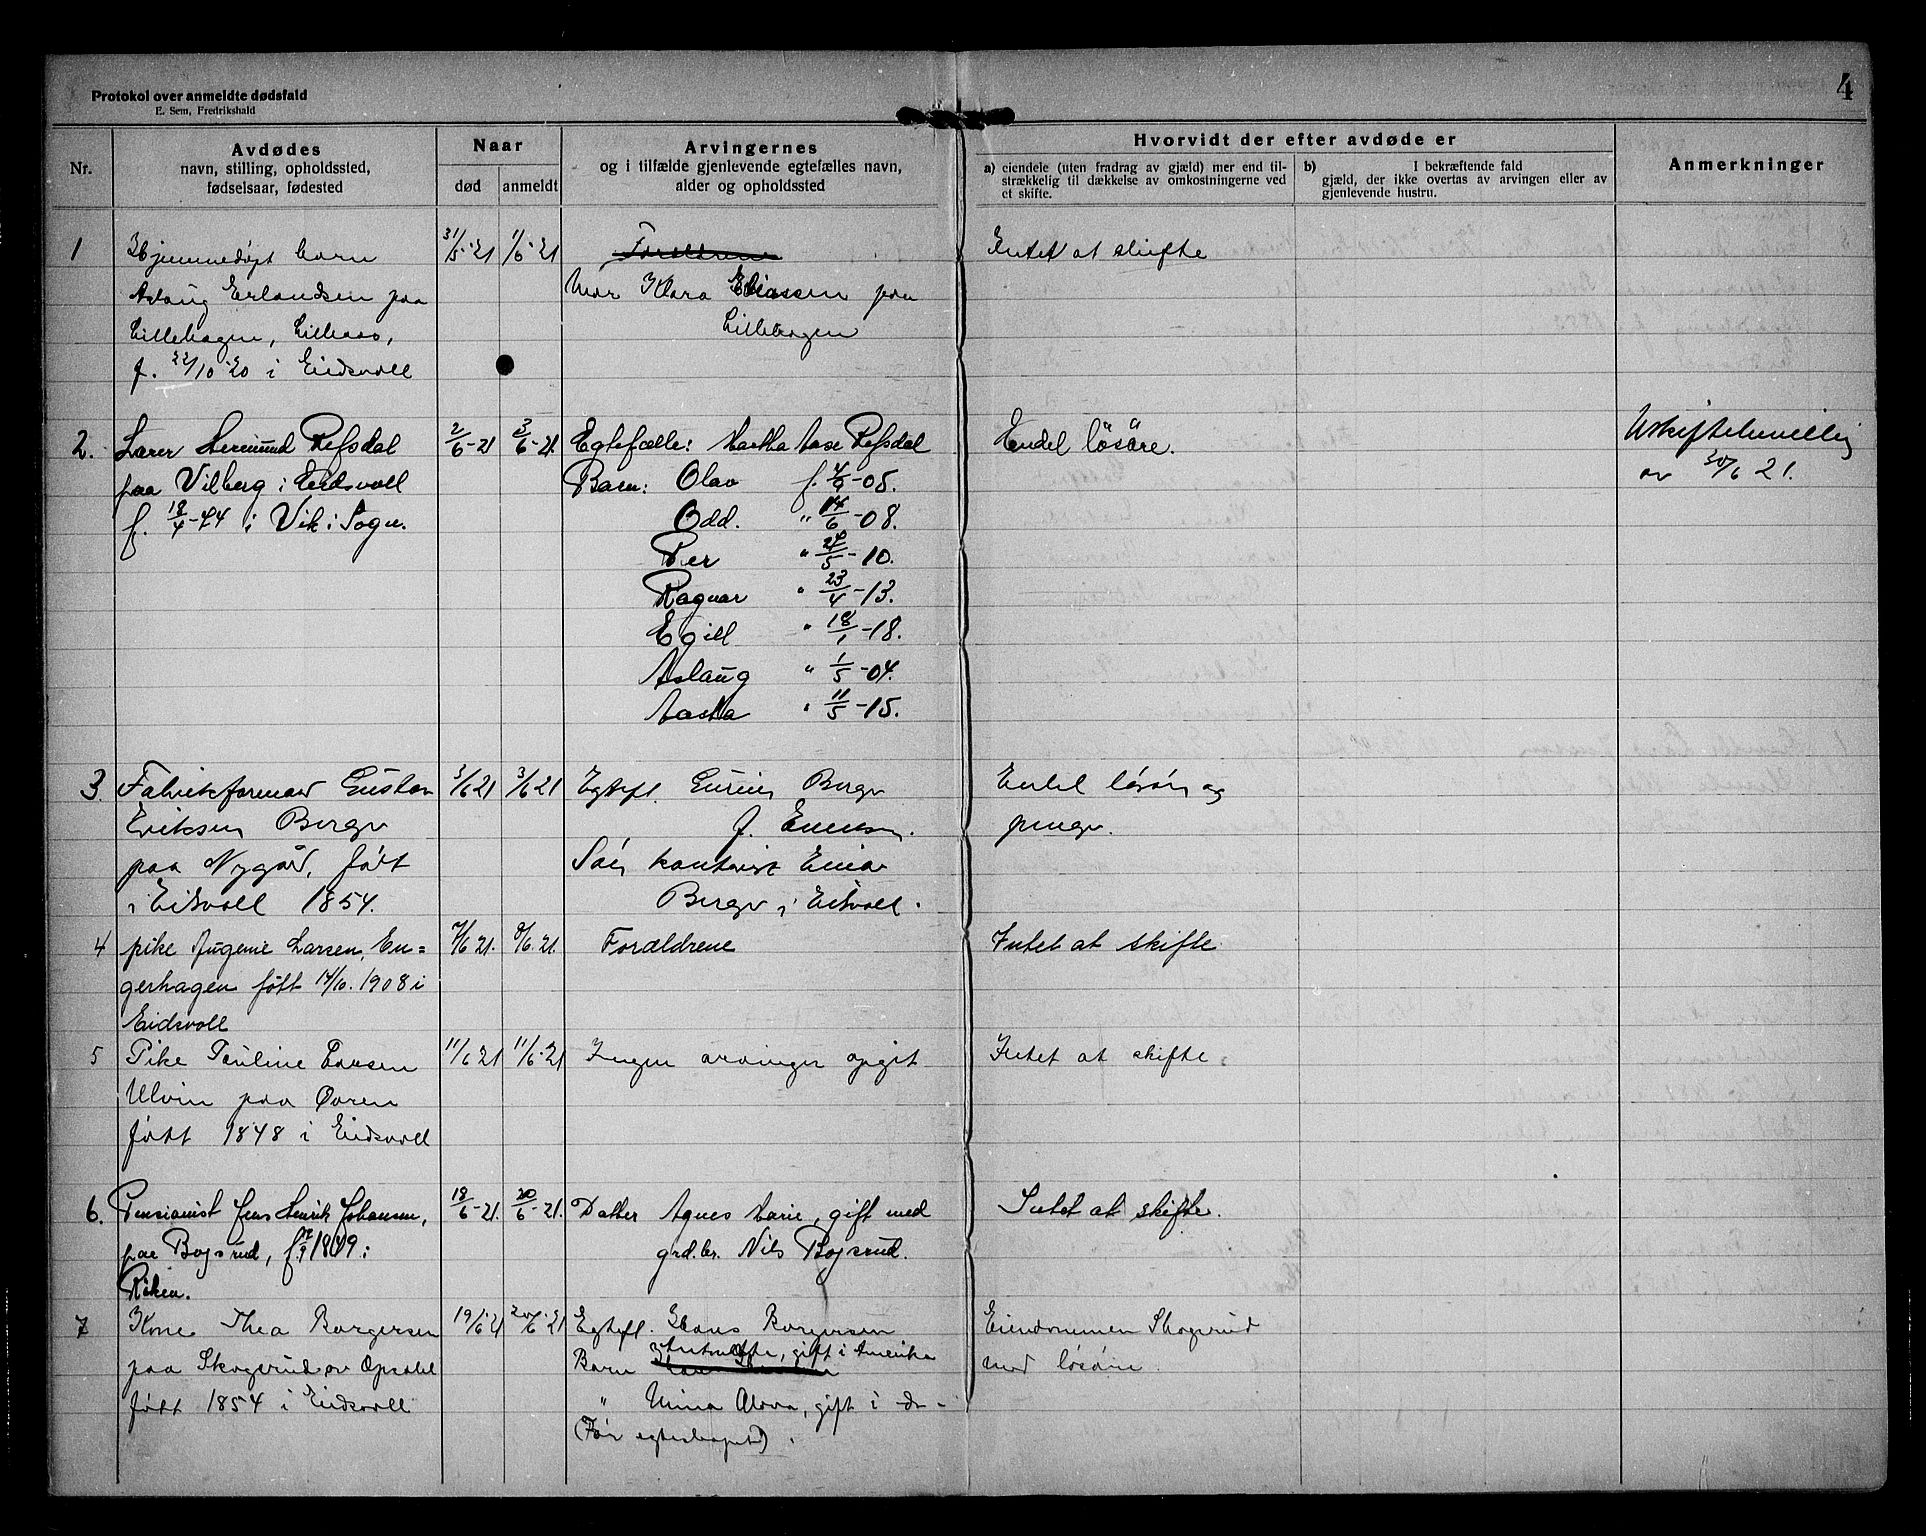 4
Protokol over anmeldte dødsfald
E. Sem, Fredrikshald
Nr.
Avdødes
navn, stilling, opholdssted,
fødselsaar, fødested
Naar
død
anmeldt
Arvingernes
og i tilfælde gjenlevende egtefælles navn,
alder og opholdssted
Hvorvidt der efter avdøde er
a) eiendele (uten fradrag av gjæld) mer end til-
strækkelig til dækkelse av omkostningerne ved
et skifte.
b) I bekræftende fald
gjæld, der ikke overtas av arvingen eller av
gjenlevende hustru.
Anmerkninger
1
Hjemmedøpt barn
Aslaug Erlandsen paa
Lillehagen,
f. 22/10 20 i Eidsvoll
31/5 21
1/6 21
Forældrene
Mor Klara Eliassen paa
Lillehagen
Intet at skifte
2.
Lærer Hermund Refsdal
paa Vilberg i Eidsvoll
f. 18/4-74 i Vik i Sogn.
2/6-21
3/6-21.
Egtefælle: Martha Aase Refsdal
Barn: Olav f. 4/9-05.
Odd. " 14/6-08.
Per " 27/5-10.
Ragnar " 23/4-13.
Egill " 18/1-18.
Aslaug " 1/5-04.
Aasta " 11/5-15.
Endel løsøre.
Uskiftebevilling
av 30/6 21.
3.
Fabrikformand Gustav
Eriksen Berger
paa Nygård, født
i Eidsvoll 1854.
3/6 21
3/6 21
Egtefl. Berger
f.
Søn kontorist Einar
Berger i Eidsvoll.
Endel løsøre og
penger.
4
pike Augenie Larsen, En=
gerhagen født 14/10. 1908 i
Eidsvoll
7/6 21.
9/6. 21.
Forældrene
Intet at skifte
5
Pike Pauline Larsen
Ulvin paa Øvren
født 1848 i Eidsvoll
11/6 21
11/6. 21
Ingen arvinger opgit
Intet at skifte.
6.
Pensionist Jens Henrik Johansen,
paa Bojsrud, f. 1849 i
Røken.
18/6-21.
20/6-21.
Datter Agnes Marie, gift med
grd.br. Nils Bojsrud.
Intet at skifte.
7
Kone Thea Borgersen
paa Skogerud av Opsahl
født 1854 i Eidsvoll
19/6 21
20/6 21
Egtefl. Hans Borgersen
Barn Antonette, gift i Amerika
" Mina Olava, gift i do -
(Før egteskapet).
Eiendommen Skogerud
med løsøre.